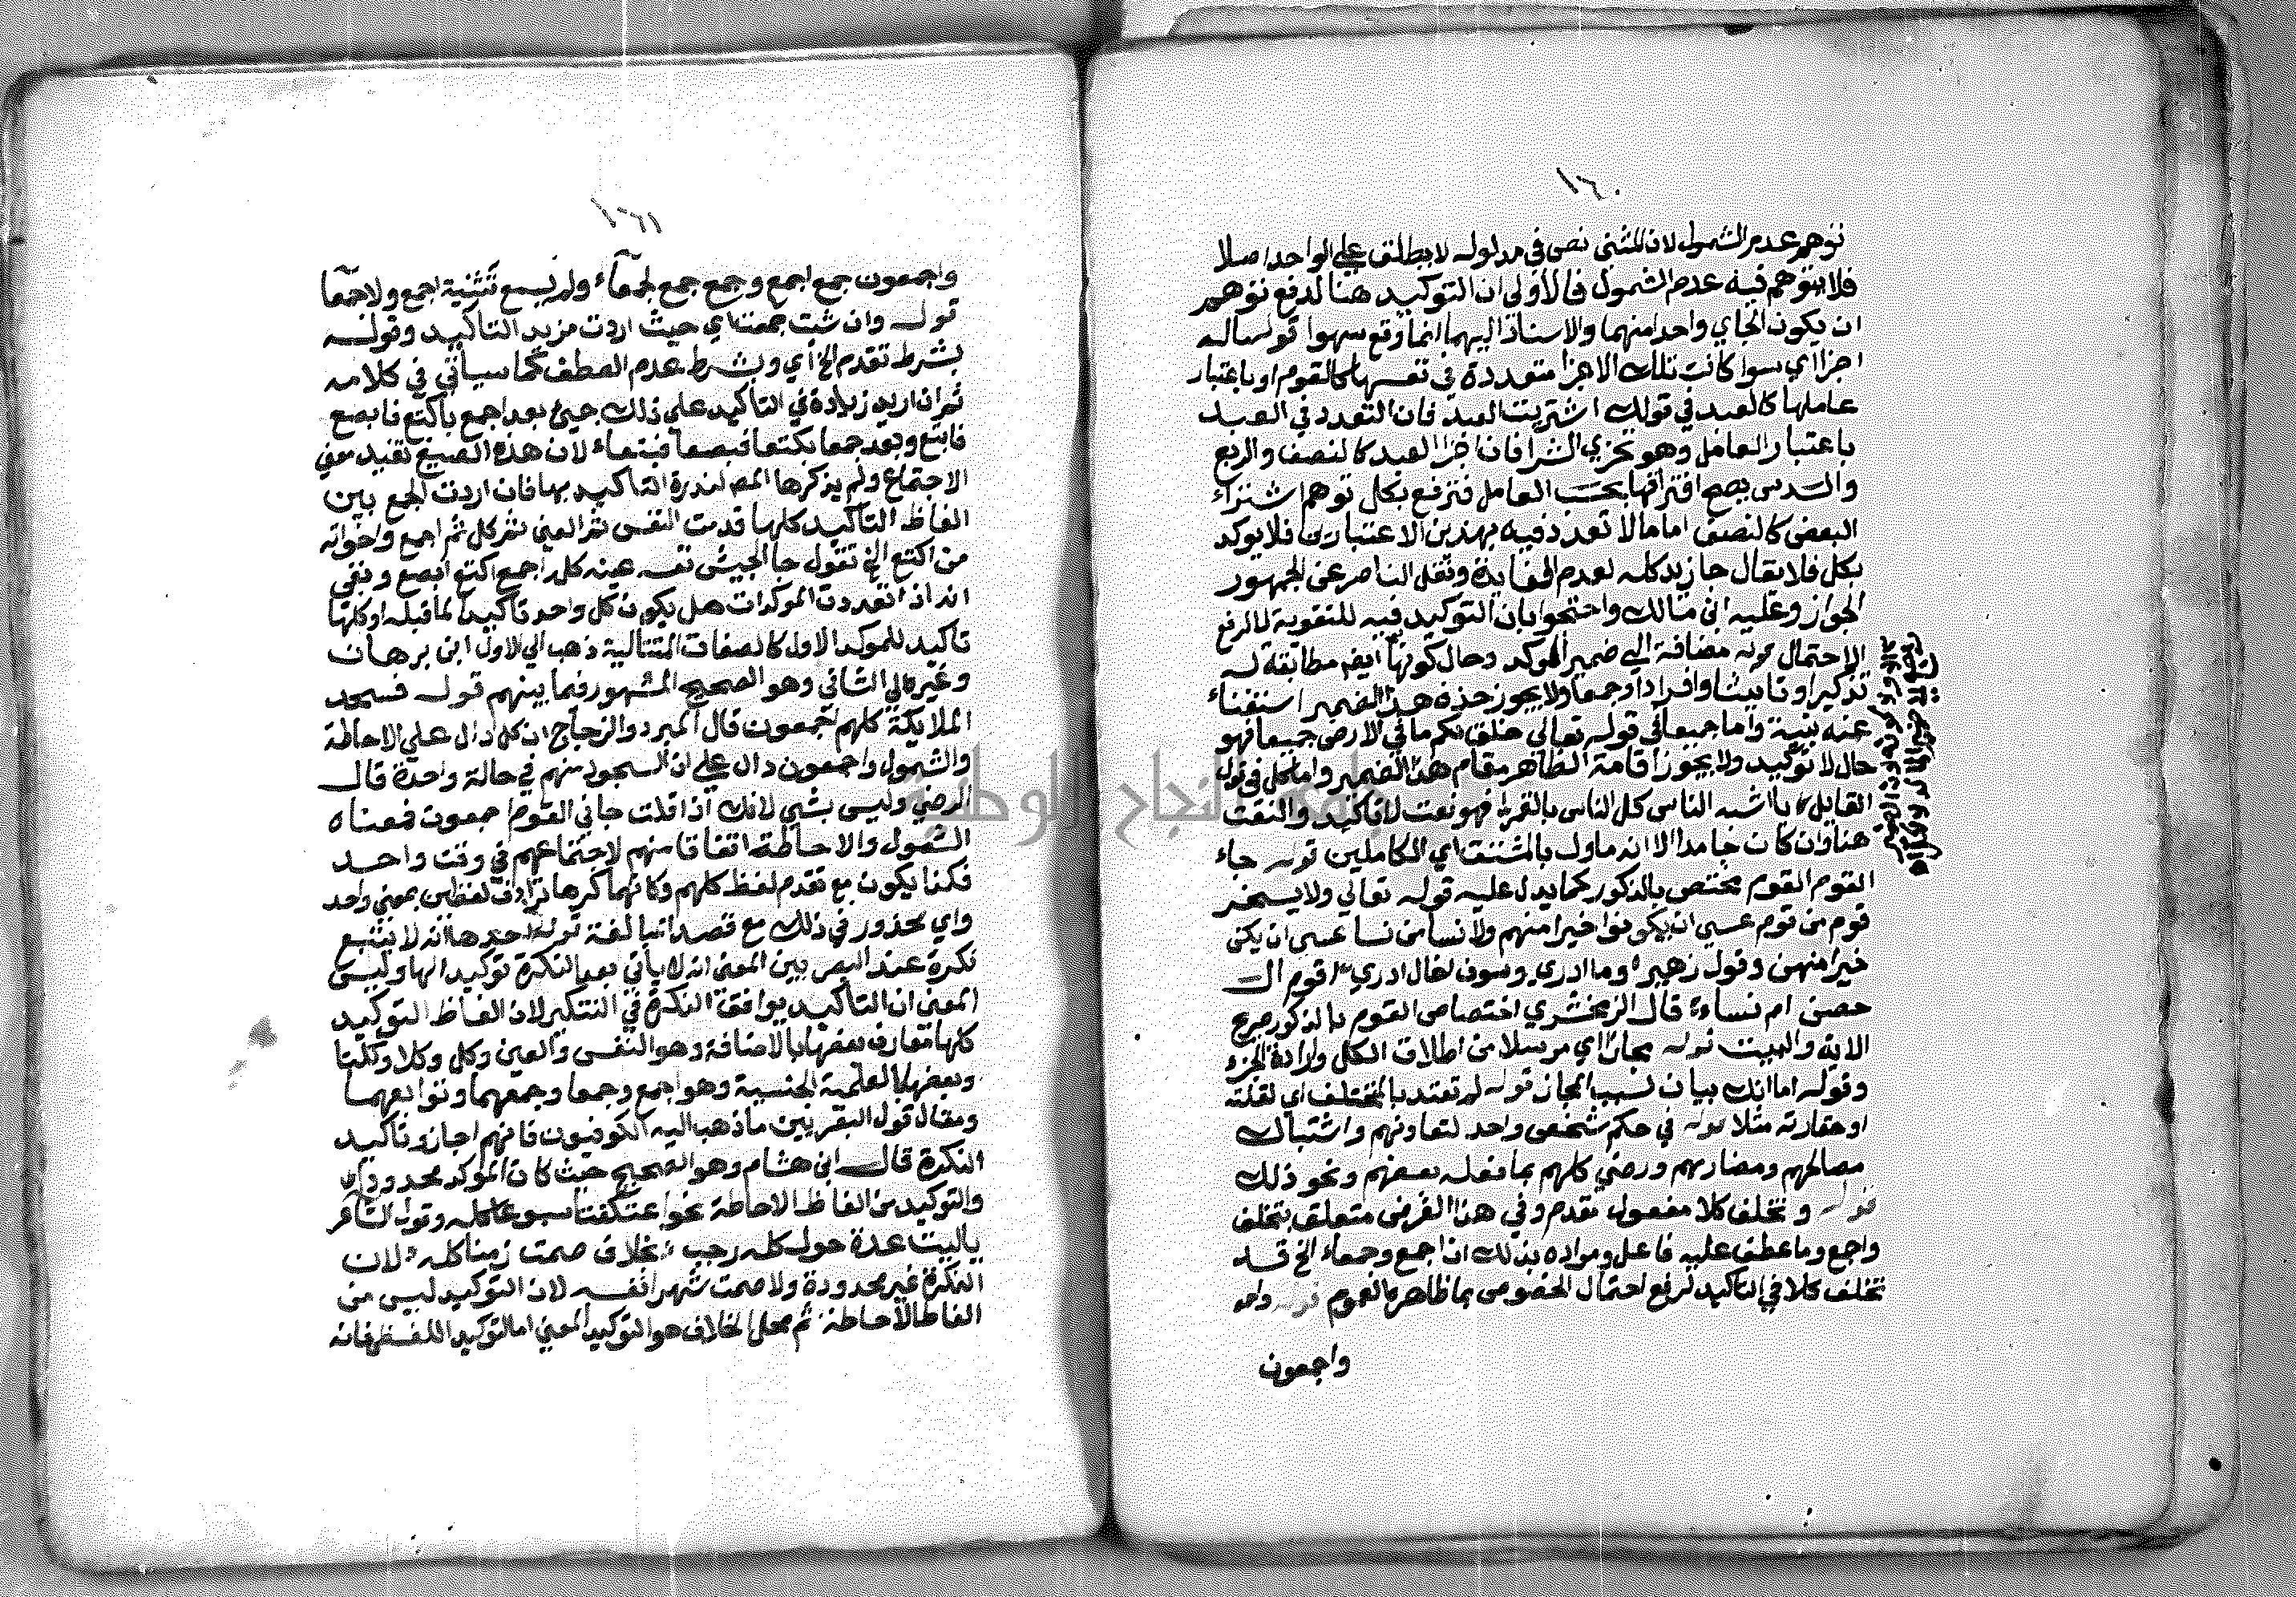 ١٦٠
توهم عدم الشمول لان المثنى نص في مدلوله لا يطلق علي الواحد اصلا
فلا يتوهم فيه عدم الشمول فالاولي ان التوكيد هنا لدفع توهم
ان يكون الجاي واحدا منهما والاسناد اليهما انما وقع سهوا قوله ماله
اجزا اي سوا كانت تلك الاجزا متعددة في نفسها كالقوم او باعتبار
عاملها كالعبد في قولك اشتريت العبد فان التعدد في العبد
باعتبار العامل وهو تجزي الشرا فان اجزا العبد كالنصف والربع
والسدس يصح افتراقها بحسب العامل فترفع بكل توهم اشتراء
البعض كالنصف اما ما لا تعدد فيه بهذين الاعتبارين فلا يوكد
بكل فلا يقال جا زيد كله لعدم الفايدة ونقل الناصر عن الجمهور
الجواز وعليه ابن مالك واحتجوا بان التوكيد فيه للتقوية لا لرفع
الاحتمال قوله مضافة الي ضمير الموكد وحال كونها ايضم مطابقة له
تذكيرا وتانيثا وافرادا وجمعا ولا يجوز حذف هذا الضمير استغناء
عنه بنية واما جميعا في قوله تعالي خلق لكم ما في الارض جميعا فهو
حال لا توكيد ولا يجوز اقامة الظاهر مقام هذا الضمير واما كل في قول
القايل يا اشبه الناس كل الناس بالقمر فهو نعت لا تاكيد والنعت
هنا وان كان جامدا الا انه ماول بالمشتق اي الكاملين قوله جاء
القوم القوم مختص بالذكور كما يدل عليه قوله تعالي ولا يسخر
قوم من قوم عسي ان يكونوا خيرا منهم ولا نسا من نسا عسى ان يكن
خيرا منهن وقول زهير وما ادري وسوف اخال ادري اقوم ال
حصن ام نساء قال الزمخشري اختصاص القوم بالذكور صريح
الاية والبيت قوله مجازا اي مرسلا من اطلاق الكل وارادة الجزء
وقوله اما انك بيان لسبب المجاز قوله لم تعتد بالمتخلف اي لقلته
او حقارته مثلا قوله في حكم شخص واحد لتعاونهم واشتباك
مصالحهم ومضارهم ورضي كلهم بما فعله بعضهم ونحو ذلك
قوله وتخلف كلا مفعول تقدم وفي هذا الغرض متعلق بتخلف
واجمع وما عطف عليه فاعل ومراده بذلك ان اجمع وجمعاء الخ قد
تخلف كلا في التاكيد لرفع احتمال الخصوص بما ظاهره العموم قوله واجمع
واجمعون
١٦١
واجمعون جمع اجمع وجمع جمع لجمعآء ولم يسمع تثنية اجمع ولا جمعآ
قوله وان شت جمعتا اي حيث اردت مزيد التاكيد وقوله
بشرط تقدم الخ اي وبشرط عدم العطف كما سياتي في كلامه
ثم ان اريد زيادة في التاكيد علي ذلك جيئ بعد اجمع باكتع فابصع
فابتع وبعد جمعا بكتعا فبصعا فبتعاء لان هذه الصيغ تفيد معني
الاجتماع ولم يذكرها المص لندرة التاكيد بها فان اردت الجمع بين
الفاظ التاكيد كلها قدمت النفس ثم العين ثم كل ثم اجمع واخواته
من اكتع الخ تقول جا الجيش نفسه عينه كله اجمع اكتع ابصع وبقي
انه اذا تعددت الموكدات هل يكون كل واحد تاكيدا لما قبله او كلها
تاكيد للموكد الاول كالصفات المتتالية ذهب الي الاول ابن برهان
وغيره الي الثاني وهو الصحيح المشهور فيما بينهم قوله فسجد
الملايكة كلهم اجمعون قال المبرد والزجاج ان كل دال علي الاحاطة
والشمول واجمعون دال علي ان السجود منهم في حالة واحدة قال
الرضي وليس بشي لانك اذا قلت جاني القوم اجمعون فمعناه
الشمول والاحاطة اتفاقا منهم لاجتماعهم في وقت واحد
فكذا يكون مع تقدم لفظ كلهم وكانهما كرها ترادف لفظين بمعني واحد
واي محذور في ذلك مع قصد المبالغة قوله احدها انه لا يتبع
نكرة عند البصريين المعني انه لا ياتي بعد النكرة توكيد لها وليس
المعني ان التاكيد يوافق النكرة في التنكير لان الفاظ التوكيد
كلها معارف بعضها بالاضافة وهو النفس والعين وكل وكلا وكلتا
وبعضها بالعلمية الجنسية وهو اجمع وجمعا وجمعهما وتوابعهما
ومقال قول البصريين ما ذهب اليه الكوفيون فانهم اجازوا تاكيد
النكرة قال ابن هشام وهو الصحيح حيث كان الموكد محدودا
والتوكيد من الفاظ الاحاطة نحو اعتكفت اسبوعا كله وقول الشاعر
ياليت عدة حول كله رجب بخلاف صمت زمنا كله لان
النكرة غير محدودة ولا صمت شهرا نفسه لان التوكيد ليس من
الفاظ الاحاطة ثم محل الخلاف هو التوكيد المعنوي اما التوكيد اللفظي فانه
جامعة النجاح الوطنية